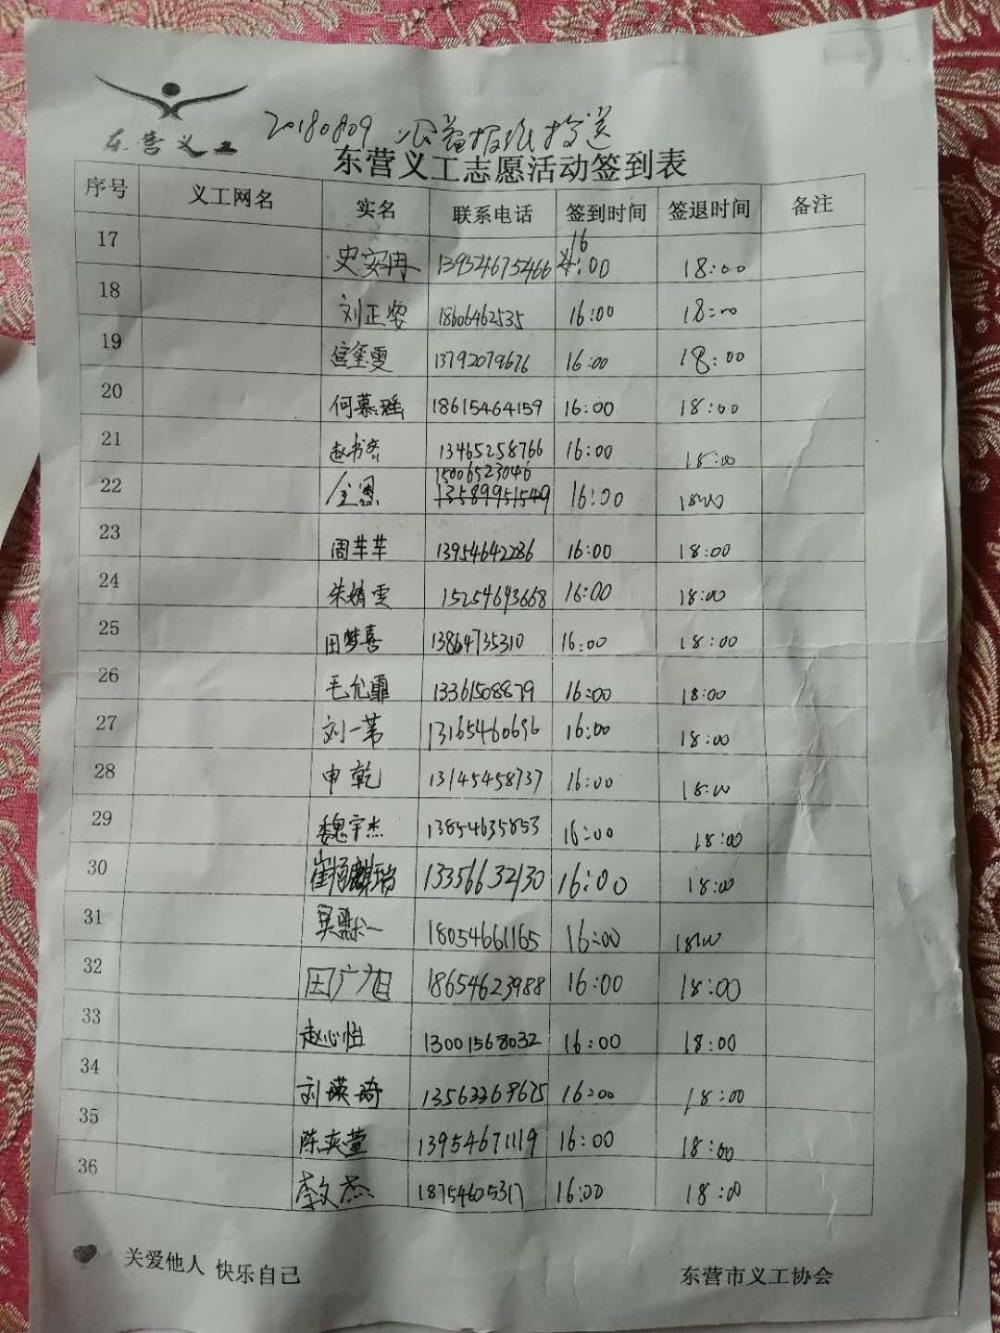 东营义工
20180809 公益报纸投送
东营义工志愿活动签到表
序号 义工网名 实名 联系电话 签到时间 签退时间 备注
17 史安冉 13954675466 16:00 18:00
18 刘正姿 18606462535 16:00 18:00
19 宫玺雯 13792079676 16:00 18:00
20 何慕瑶 18615464159 16:00 18:00
21 赵书齐 13465258766 16:00 18:00
22 15006523046 13589951549 16:00 18:00
23 周芊芊 13954642286 16:00 18:00
24 朱婧雯 15254693668 16:00 18:00
25 田梦喜 13864735310 16:00 18:00
26 毛允 13361508879 16:00 18:00
27 刘一苇 13165460696 16:00 18:00
28 申乾 13145458737 16:00 18:00
29 魏宇杰 13854635853 16:00 18:00
30 13356632130 16:00 18:00
31 18054661165 16:00 18:00
32 田广 18654623988 16:00 18:00
33 赵心怡 13001568032 16:00 18:00
34 刘瑛琦 13563369625 16:00 18:00
35 陈奕萱 13954671119 16:00 18:00
36 李文杰 18754605317 16:00 18:00
关爱他人 快乐自己
东营市义工协会